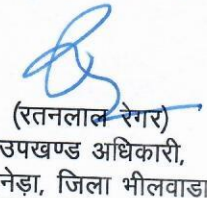 (रतनलाल रेगर)
उपखण्ड अधिकारी,
नेड़ा, जिला भीलवाडा